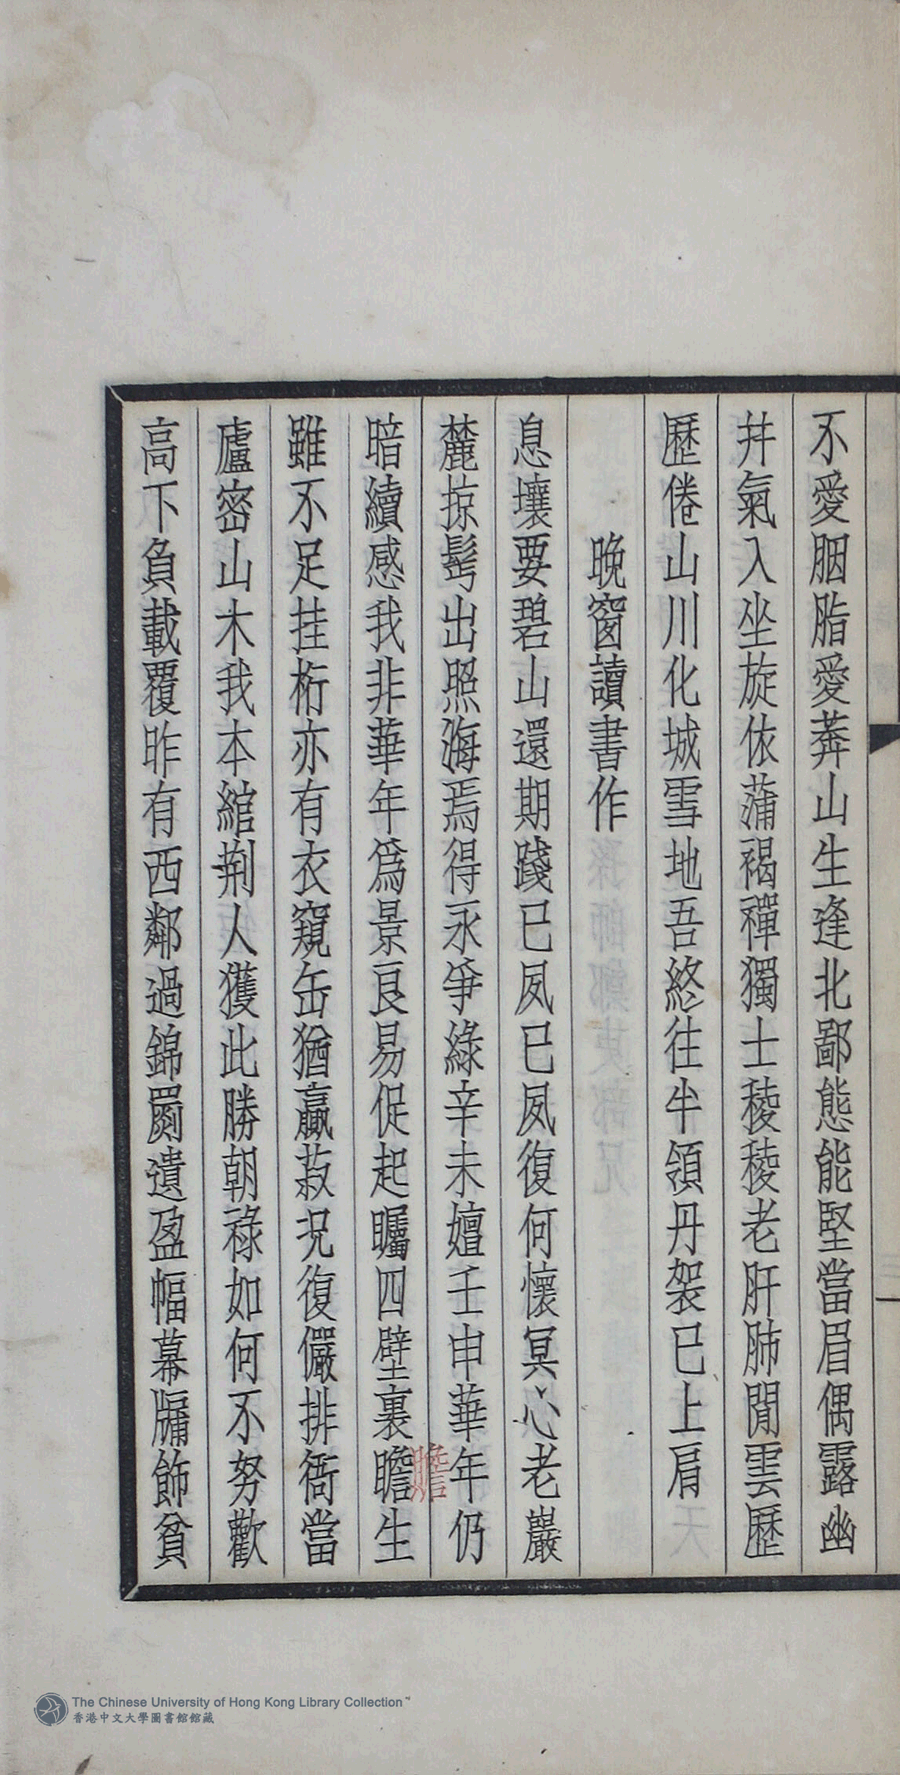 不愛胭脂愛莽山生逢北鄙態能堅當眉偶露幽
井氣入坐旋依蒲褐禪獨士稜稜老肝肺閒雲歷
歷倦山川化城雪地吾終往半領丹袈已上肩
晚窗讀書作
息壤要碧山還期踐已夙已夙復何懷冥心老巖
麓掠髩出照海焉得永爭綠辛未嬗壬申華年仍
暗續感我非華年爲景良易促起矚四壁裏瞻生
瞻
雖不足挂桁亦有衣窺缶猶贏菽況復儼排衙當
廬密山木我本綰荆人獲此勝朝祿如何不努歡
高下負載覆昨有西鄰過錦罽遺盈幅幕牖飾貧
The Chinese University of Hong Kong Library Collection
香港中文大學圖書館館藏